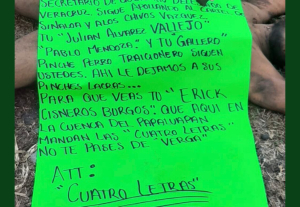 SECRETARIO DE
VERACRUZ SIGUE APOYANDO AL CARTEL DE
SINALOA Y ALOS CHIVOS VAZQUEZ
TU "JULIAN ALVAREZ VALLEJO"
"PABLO MENDOZA" Y TU "GALLERO"
PINCHE PERRO TRAICIONERO SIGUEN
USTEDES. AHI LE DEJAMOS A SUS
PINCHES LACRAS...
PARA QUE VEAS TU "ERICK
CISNEROS BURGOS" QUE AQUI EN
LA CUENCA DEL PAPALUAPAN
MANDAN LAS "CUATRO LETRAS"
NO TE PASES DE VERGA"
ATT:
"CUATRO LETRAS"